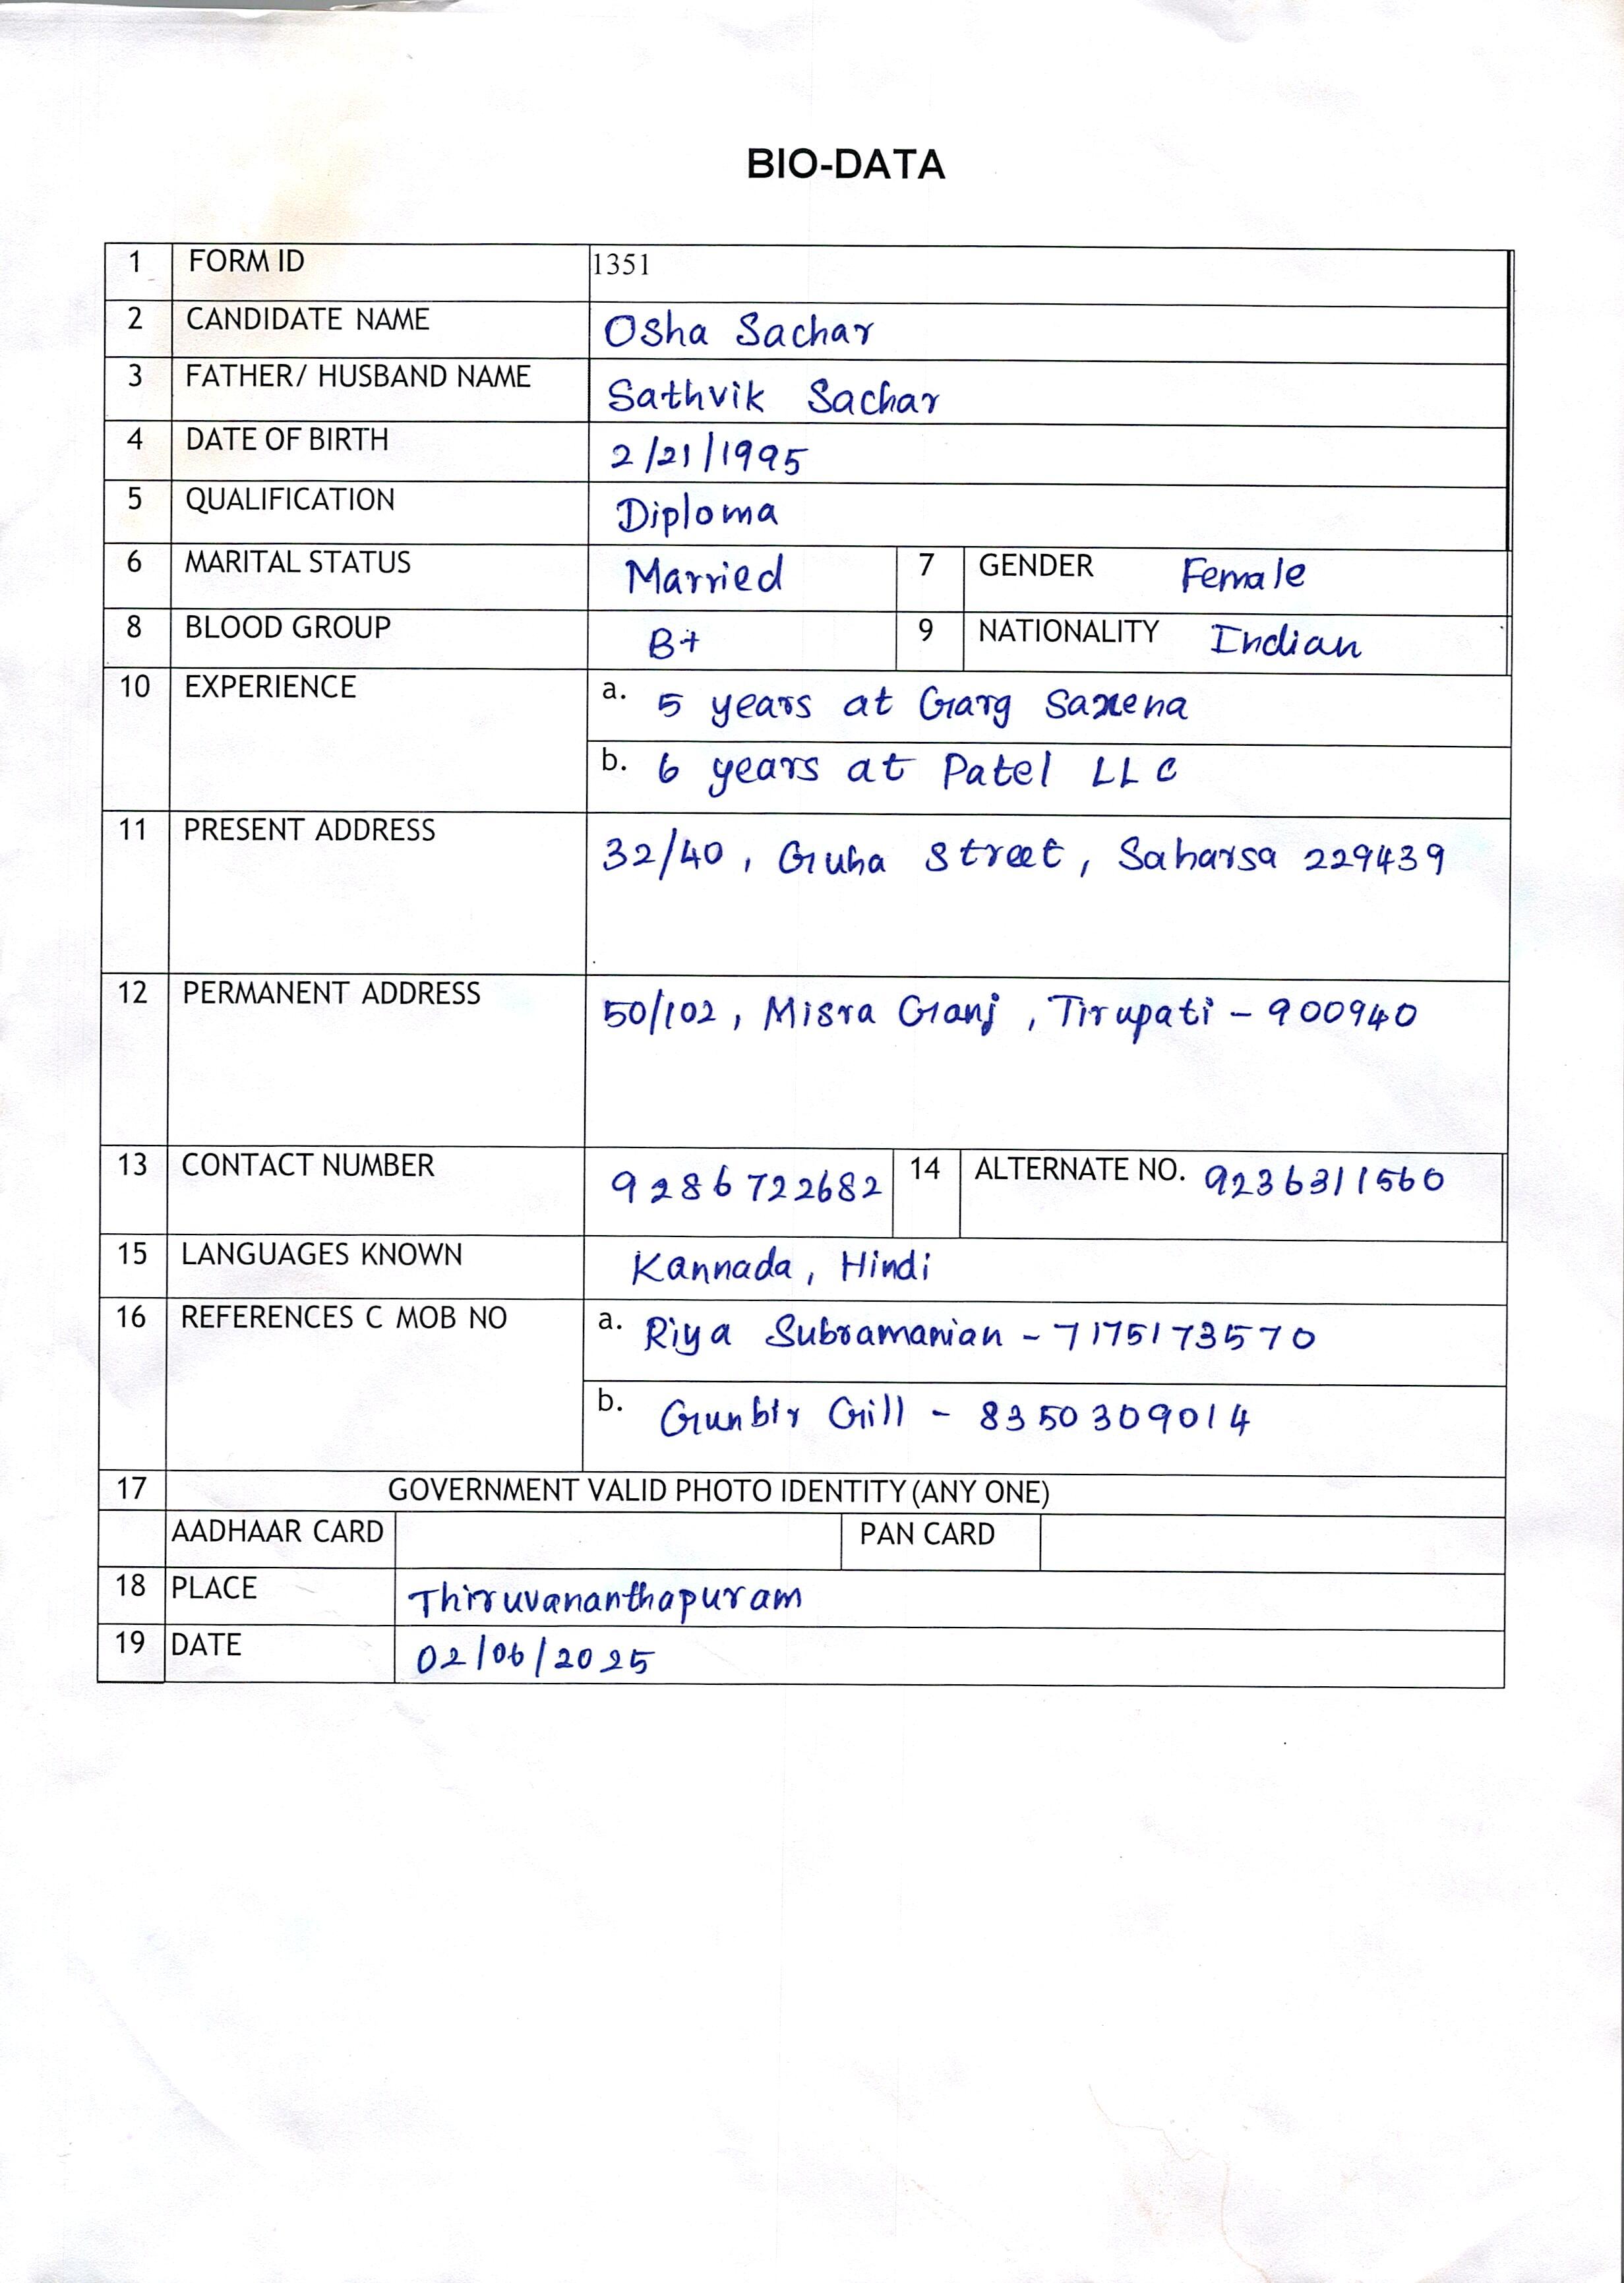 BIO-DATA
1 FORM ID 1351
2 CANDIDATE NAME Osha Sachar
3 FATHER/ HUSBAND NAME Sathvik Sachar
4 DATE OF BIRTH 2/21/1995
5 QUALIFICATION Diploma
6 MARITAL STATUS Married 7 GENDER Female
8 BLOOD GROUP B+ 9 NATIONALITY Indian
10 EXPERIENCE a. 5 years at Garg Saxena
b. 6 years at Patel LLC
11 PRESENT ADDRESS 32/40, Guha Street, Saharsa 229439
12 PERMANENT ADDRESS 50/102, Misra Ganj, Tirupati - 900940
13 CONTACT NUMBER 9286722682 14 ALTERNATE NO. 9236311560
15 LANGUAGES KNOWN Kannada, Hindi
16 REFERENCES C MOB NO a. Riya Subramanian - 7175173570
b. Gunbir Gill - 8350309014
17 GOVERNMENT VALID PHOTO IDENTITY (ANY ONE)
AADHAAR CARD PAN CARD
18 PLACE Thiruvananthapuram
19 DATE 02/06/2025